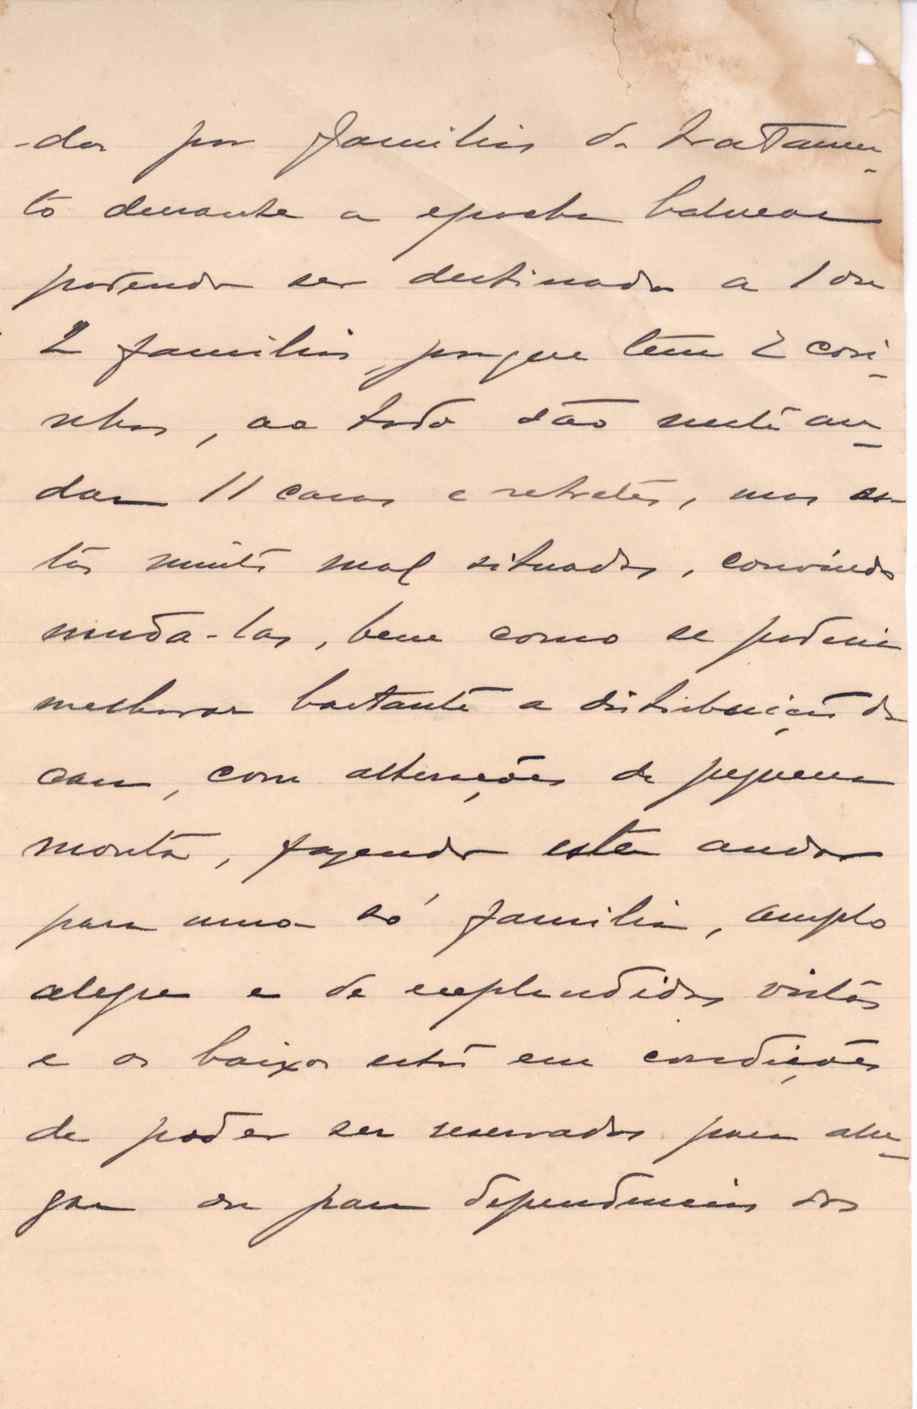 -dos por familias de tratamen-
to durante a epocha balnear
podendo ser destinada a 1 ou
2 familias, porque tem 2 cosi-
nhas, ao todo são neste an-
dar 11 casas e retretes, mas es-
tas muito mal situadas, convindo
muda-las, bem como se poderia
melhorar bastante a distribuição da
casa, com alterações de pequena
monta, fazendo este andar
para uma só familia, amplo
alegre e de explendidas vistas
e os baixos estão em condições
de poder ser reservados para alu-
gar ou para dependencias dos